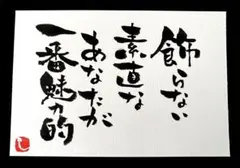 飾らない
素直な
あなたが
一番魅力的